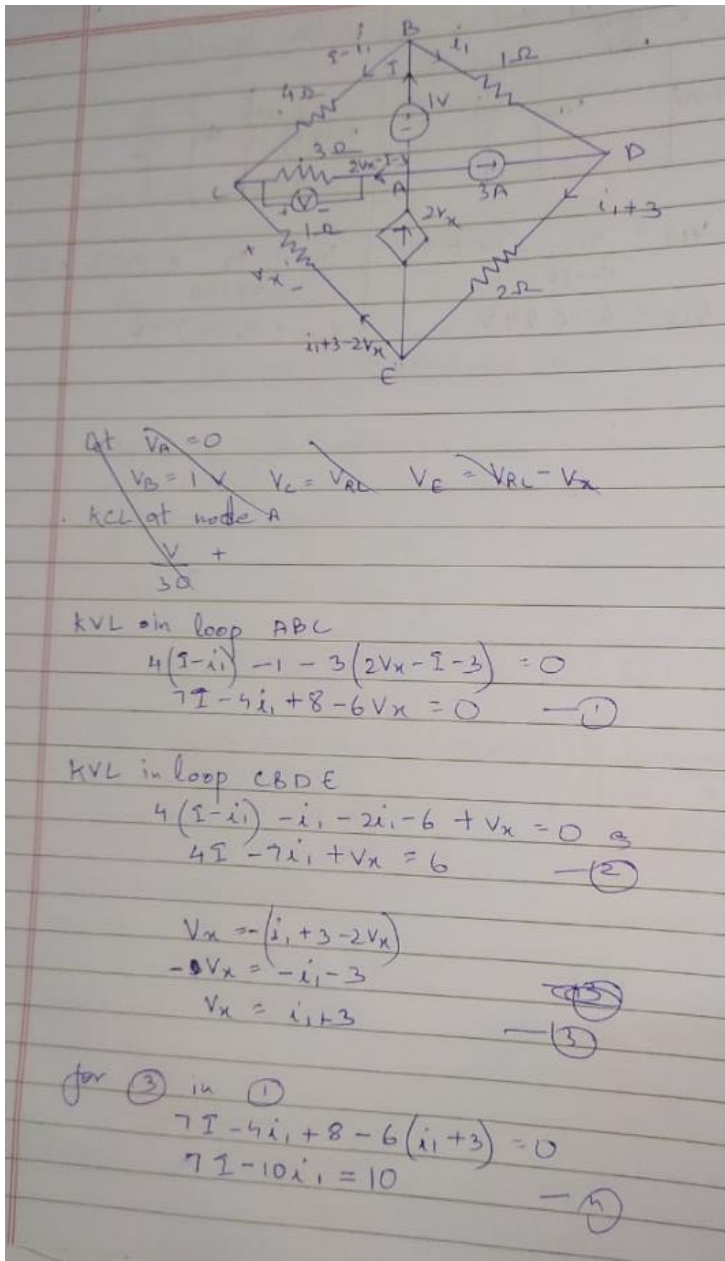 B
I-i₁
i₁
4Ω
I
1Ω
1V
3Ω
2Vx-I-3
A
D
C
V
+ -
3A
1Ω
2Vx
i₁+3
+
Vx
-
2Ω
i₁+3-2Vx
E
At VA = 0
VB = 1 V VC = VRL VE = VRL - Vx
KCL at node A
V/3Ω +
KVL in loop ABC
4(I-i₁) -1 -3(2Vx-I-3) = 0
7I-4i₁+8-6Vx = 0 —①
KVL in loop CBDE
4(I-i₁) -i₁-2i₁-6 +Vx = 0
4I-7i₁+Vx = 6 —②
Vx = -(i₁+3-2Vx)
-Vx = -i₁-3
Vx = i₁+3 —③
for ③ in ①
7I-4i₁+8-6(i₁+3) = 0
7I-10i₁ = 10 —④